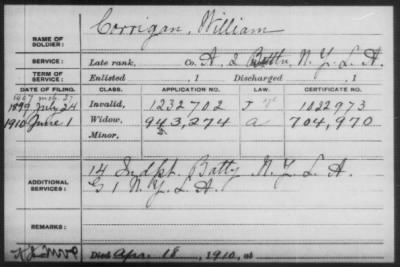 Corrigan, William
NAME OF
SOLDIER:
SERVICE: Late rank, Co. A, 2 Battn, N.Y. L. A.
TERM OF
SERVICE: Enlisted , 1 Discharged , 1
DATE OF FILING. CLASS. APPLICATION NO. LAW. CERTIFICATE NO.
1907 Mch. 27
1899 July 24 Invalid, 1232702 1022973
1910 June 1 Widow, 943,274 a 704,970
Minor,
ADDITIONAL
SERVICES: 14 Indpt. Batty N.Y. L. A.
G 1 N.Y. L. A.
REMARKS:
Died Apr. 18, 1910, at